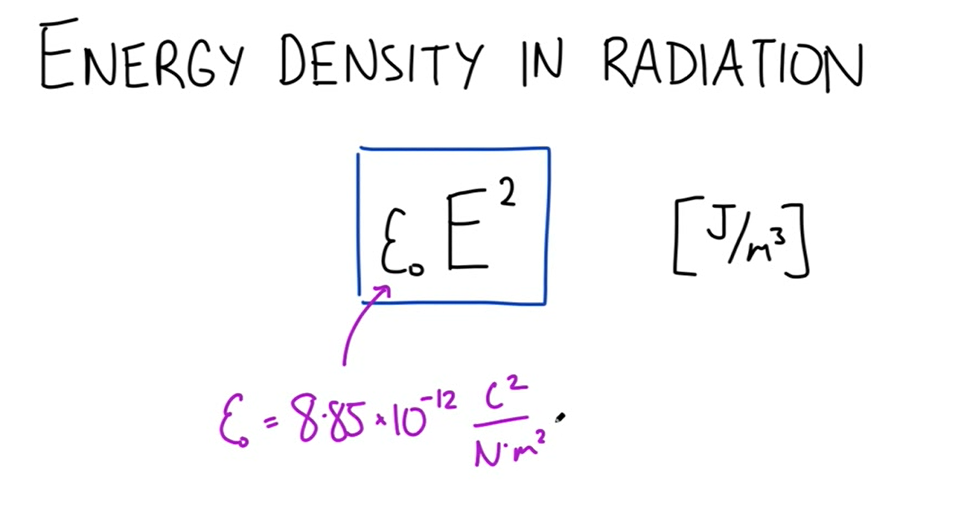 ENERGY DENSITY IN RADIATION
ε₀E² [J/m³]
ε₀ = 8.85×10⁻¹² C²/N·m²